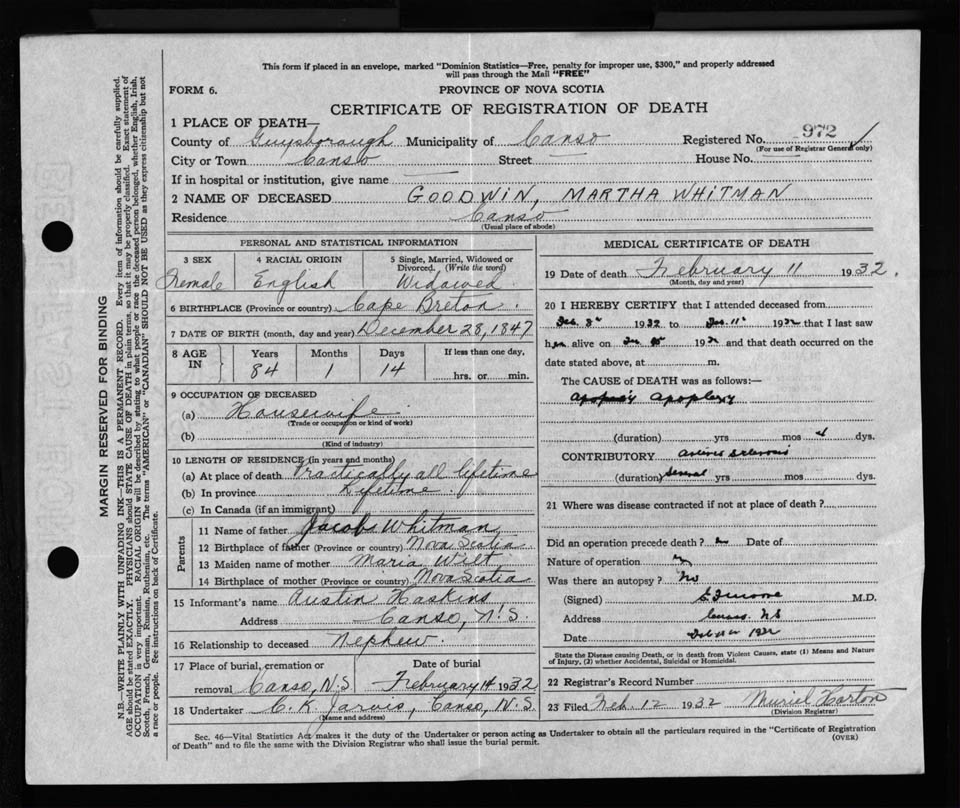 This form if placed in an envelope, marked "Dominion Statistics—Free, penalty for improper use, $300," and properly addressed
will pass through the Mail "FREE"
FORM 6.
PROVINCE OF NOVA SCOTIA
CERTIFICATE OF REGISTRATION OF DEATH
1 PLACE OF DEATH—
County of Guysborough Municipality of Canso Registered No. 972
(For use of Registrar General only)
City or Town Canso Street — House No. —
If in hospital or institution, give name —
2 NAME OF DECEASED GOODWIN, MARTHA WHITMAN
Residence Canso
(Usual place of abode)
PERSONAL AND STATISTICAL INFORMATION
3 SEX 4 RACIAL ORIGIN 5 Single, Married, Widowed or
Divorced. (Write the word)
Female English Widowed
6 BIRTHPLACE (Province or country) Cape Breton.
7 DATE OF BIRTH (month, day and year) December 28, 1847
8 AGE IN Years Months Days If less than one day,
84 1 14 hrs. or min.
9 OCCUPATION OF DECEASED
(a) Housewife
(Trade or occupation or kind of work)
(b)
(Kind of industry)
10 LENGTH OF RESIDENCE (in years and months)
(a) At place of death Practically all lifetime
(b) In province Lifetime.
(c) In Canada (if an immigrant)
Parents
11 Name of father Jacob Whitman
12 Birthplace of father (Province or country) Nova Scotia
13 Maiden name of mother Maria Wilt
14 Birthplace of mother (Province or country) Nova Scotia
15 Informant's name Austin Haskins
Address Canso, N.S.
16 Relationship to deceased Nephew.
17 Place of burial, cremation or Date of burial
removal Canso, N.S. February 14 1932
18 Undertaker C. K. Jarvis, Canso, N.S.
(Name and address)
MEDICAL CERTIFICATE OF DEATH
19 Date of death February 11 1932.
(Month, day and year)
20 I HEREBY CERTIFY that I attended deceased from
1932 to 1932 that I last saw
her alive on 1932 and that death occurred on the
date stated above, at m.
The CAUSE of DEATH was as follows:—
Apoplexy
(duration) yrs mos dys.
CONTRIBUTORY Arterio sclerosis
(duration) several yrs mos dys.
21 Where was disease contracted if not at place of death?
Did an operation precede death? Date of
Nature of operation
Was there an autopsy? No
(Signed) M.D.
Address Canso NS
Date 1932
State the Disease causing Death, or in death from Violent Causes, state (1) Means and Nature
of Injury, (2) whether Accidental, Suicidal or Homicidal.
22 Registrar's Record Number
23 Filed Feb. 12 1932 Muriel
(Division Registrar)
Sec. 46—Vital Statistics Act makes it the duty of the Undertaker or person acting as Undertaker to obtain all the particulars required in the "Certificate of Registration
of Death" and to file the same with the Division Registrar who shall issue the burial permit.
(OVER)
MARGIN RESERVED FOR BINDING
N.B.—WRITE PLAINLY WITH UNFADING INK—THIS IS A PERMANENT RECORD. Every item of information should be carefully supplied.
AGE should be stated EXACTLY. PHYSICIANS should STATE CAUSE OF DEATH in plain terms, so that it may be properly classified. Exact statement of
OCCUPATION is very important. RACIAL ORIGIN will be described by stating to what people or race the deceased person belonged, whether English, Irish,
Scotch, French, German, Russian, Ruthenian, etc. The terms "AMERICAN" or "CANADIAN" SHOULD NOT BE USED as they express citizenship but not
a race or people. See instructions on back of Certificate.